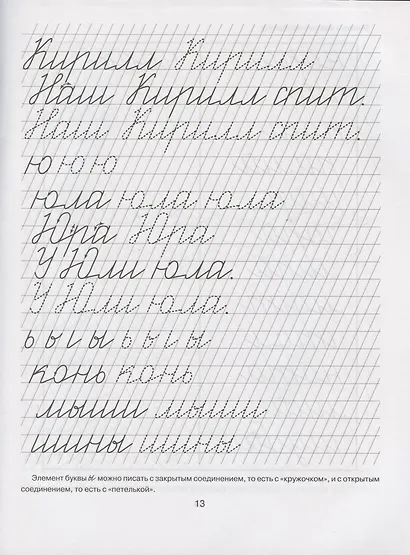 Кирилл Кирилл
Наш Кирилл спит.
Наш Кирилл спит.
ю ю ю
юла юла юла
Юра Юра
У Юли юла.
У Юли юла.
ь ы ı ы ь ы ı ы
конь конь
мыши мыши
шины шины
Элемент буквы Ю можно писать с закрытым соединением, то есть с «кружочком», и с открытым
соединением, то есть с «петелькой».
13